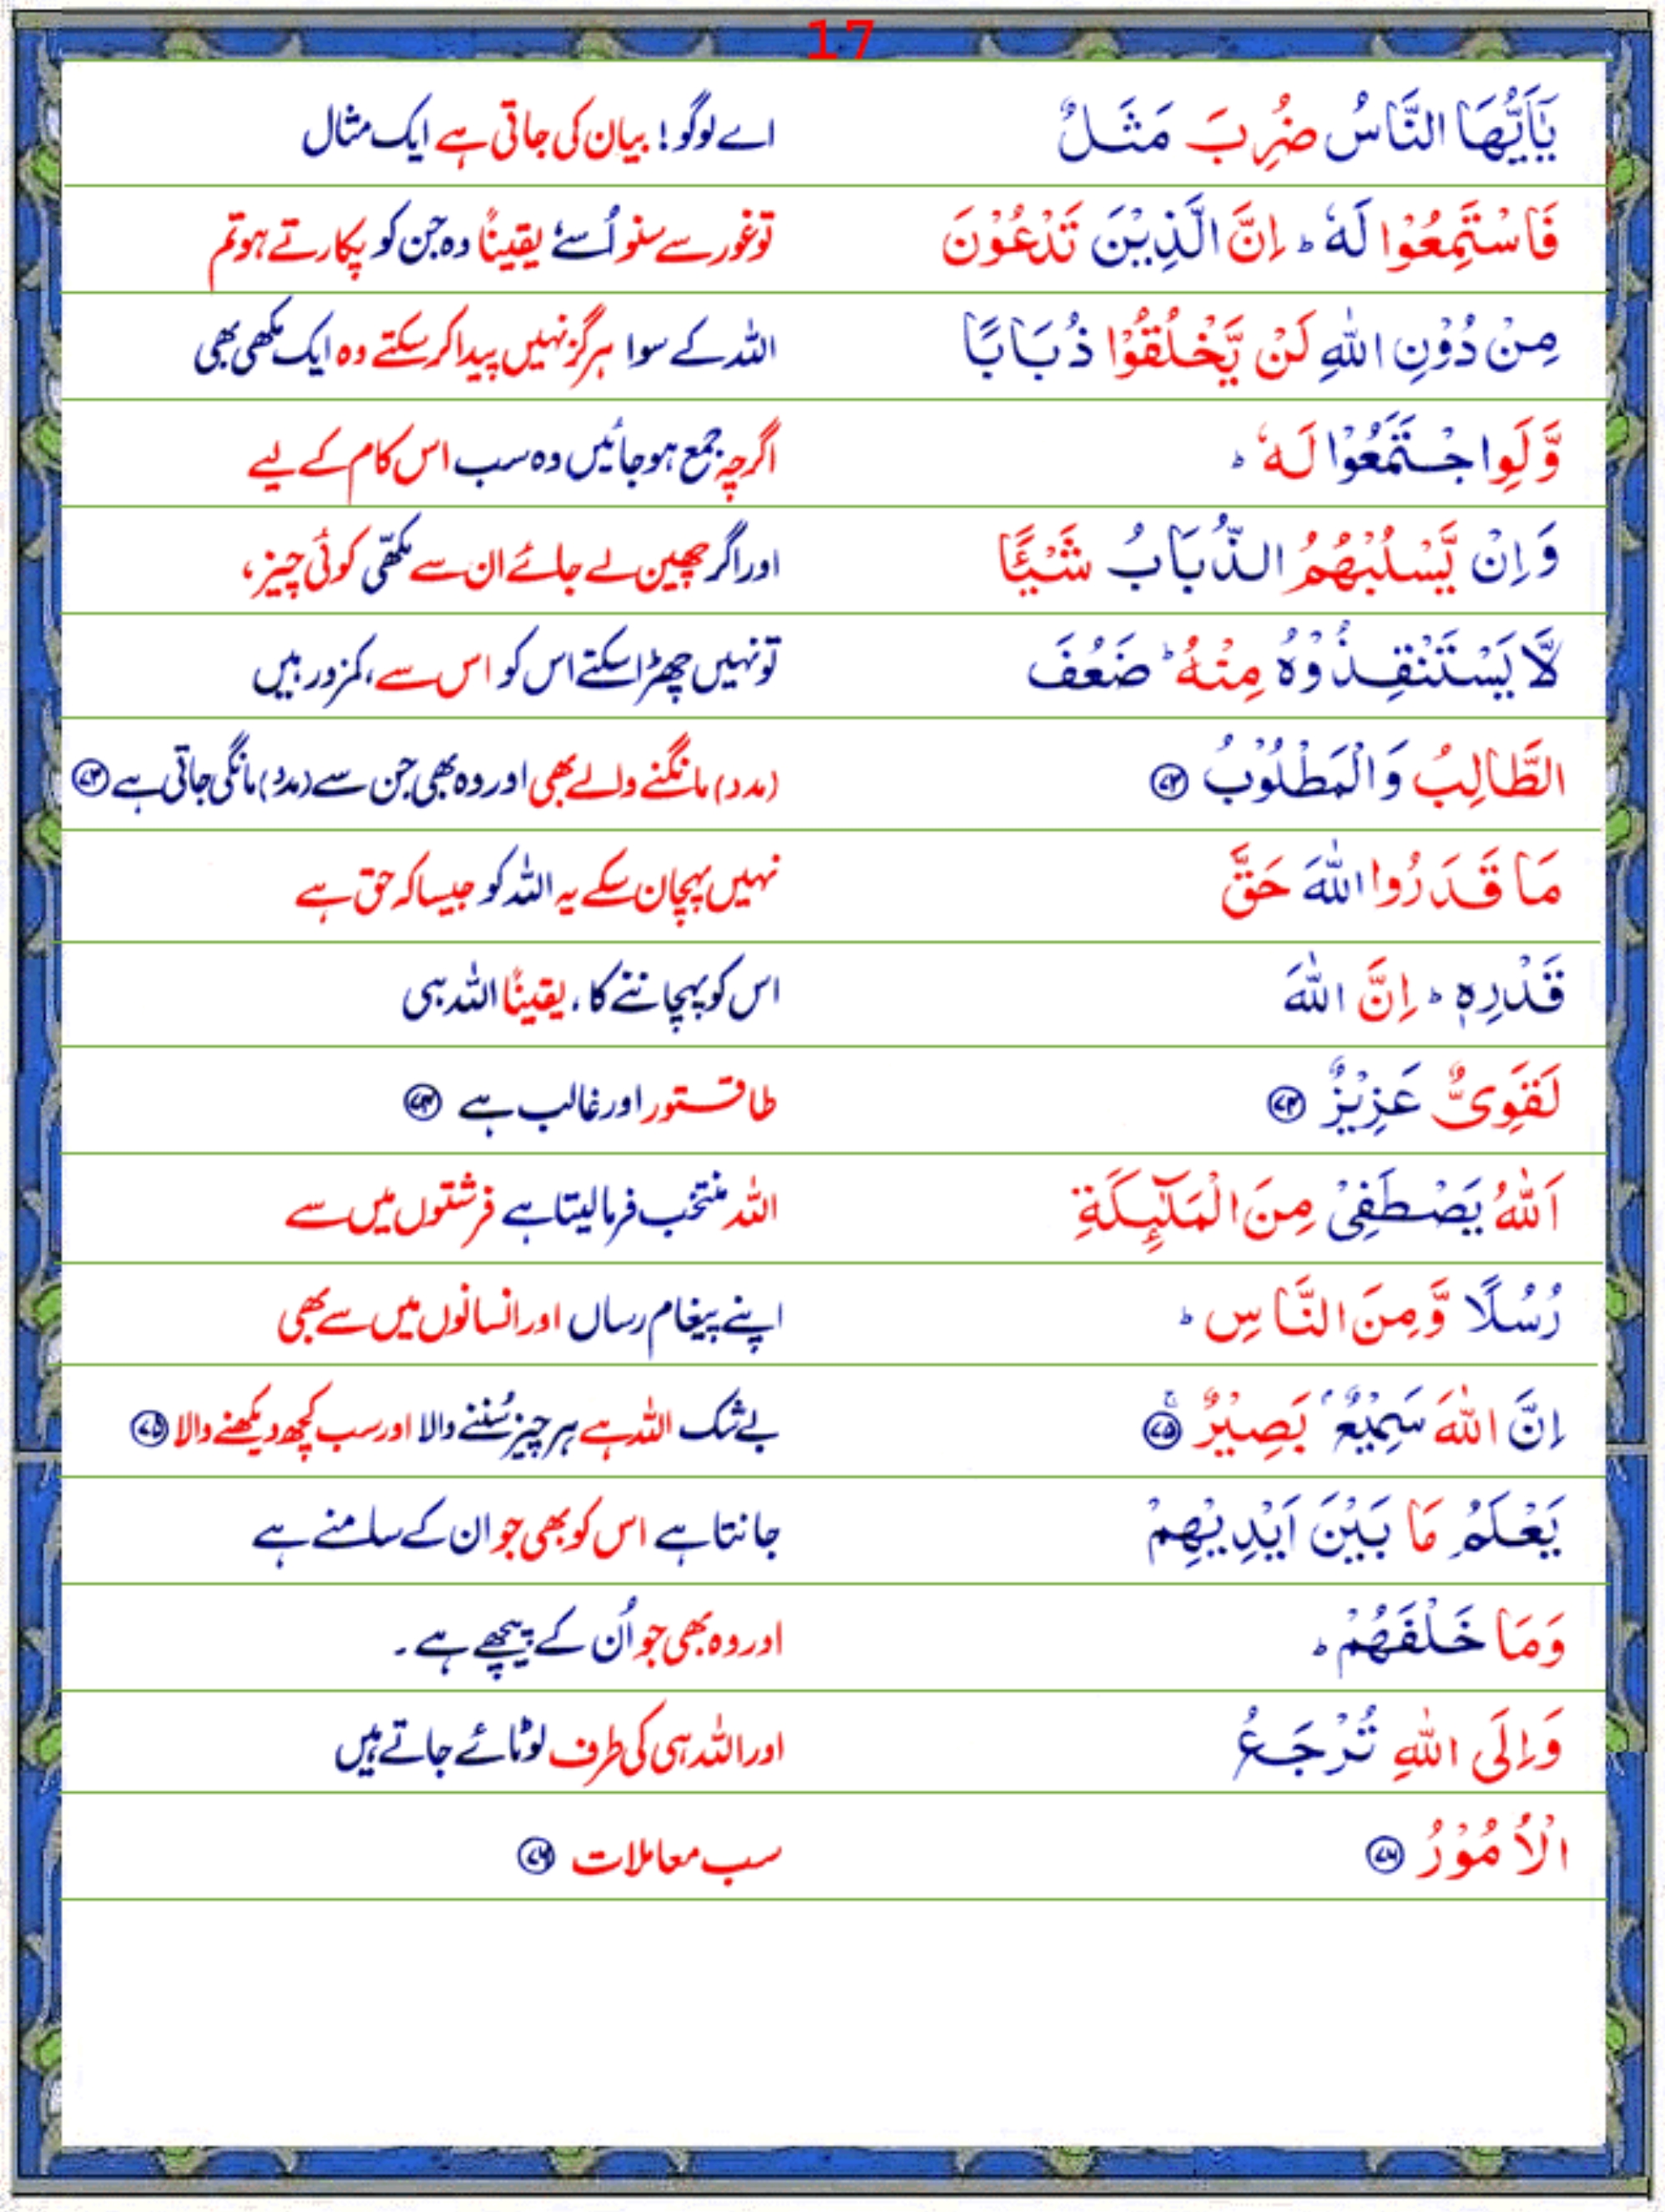 17
يٰۤاَيُّهَا النَّاسُ ضُرِبَ مَثَلٌ
اے لوگو! بیان کی جاتی ہے ایک مثال
فَاسْتَمِعُوْا لَهٗ ؕ اِنَّ الَّذِيْنَ تَدْعُوْنَ
تو غور سے سنو اُسے، یقیناً وہ جن کو پکارتے ہو تم
مِنْ دُوْنِ اللّٰهِ لَنْ يَّخْلُقُوْا ذُبَابًا
اللہ کے سوا ہرگز نہیں پیدا کر سکتے وہ ایک مکھی بھی
وَّلَوِ اجْتَمَعُوْا لَهٗ ؕ
اگرچہ جمع ہو جائیں وہ سب اس کام کے لیے
وَاِنْ يَّسْلُبْهُمُ الذُّبَابُ شَيْـًٔا
اور اگر چھین لے جائے ان سے مکھّی کوئی چیز،
لَّا يَسْتَنْقِذُوْهُ مِنْهُ ؕ ضَعُفَ
تو نہیں چھڑا سکتے اس کو اس سے، کمزور ہیں
الطَّالِبُ وَالْمَطْلُوْبُ ۷۳
(مدد) مانگنے والے بھی اور وہ بھی جن سے (مدد) مانگی جاتی ہے ۷۳
مَا قَدَرُوا اللّٰهَ حَقَّ
نہیں پہچان سکے یہ اللہ کو جیسا کہ حق ہے
قَدْرِهٖ ؕ اِنَّ اللّٰهَ
اس کو پہچاننے کا، یقیناً اللہ ہی
لَقَوِىٌّ عَزِيْزٌ ۷۴
طاقتور اور غالب ہے ۷۴
اَللّٰهُ يَصْطَفِىْ مِنَ الْمَلٰٓئِكَةِ
اللہ منتخب فرما لیتا ہے فرشتوں میں سے
رُسُلًا وَّمِنَ النَّاسِ ؕ
اپنے پیغام رساں اور انسانوں میں سے بھی
اِنَّ اللّٰهَ سَمِيْعٌۢ بَصِيْرٌ ۚ ۷۵
بے شک اللہ ہے ہر چیز سُننے والا اور سب کچھ دیکھنے والا ۷۵
يَعْلَمُ مَا بَيْنَ اَيْدِيْهِمْ
جانتا ہے اس کو بھی جو ان کے سامنے ہے
وَمَا خَلْفَهُمْ ؕ
اور وہ بھی جو اُن کے پیچھے ہے۔
وَاِلَى اللّٰهِ تُرْجَعُ
اور اللہ ہی کی طرف لوٹائے جاتے ہیں
الْاُمُوْرُ ۷۶
سب معاملات ۷۶